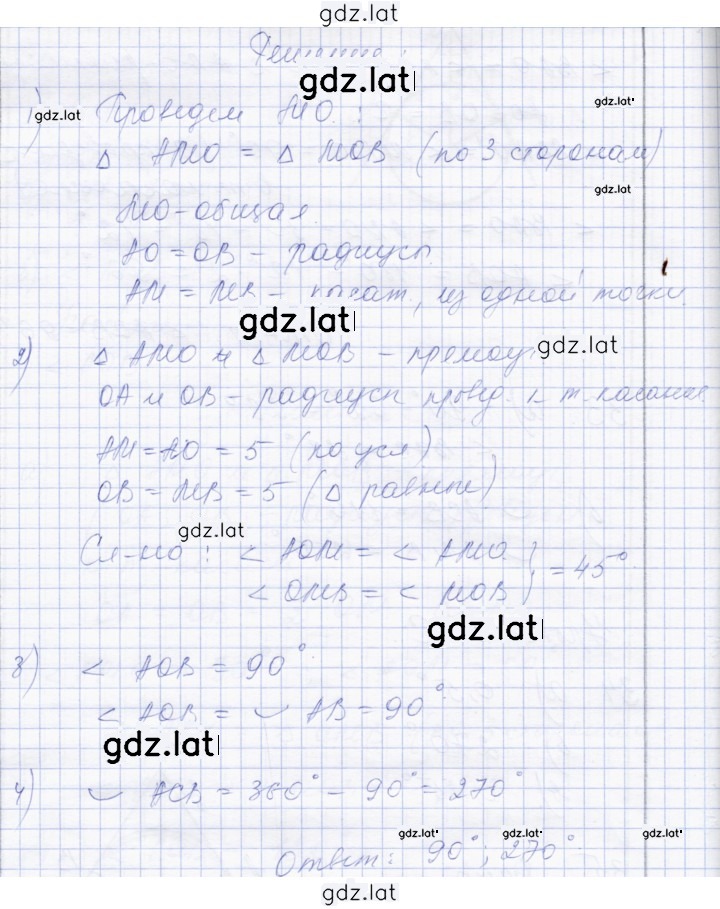 gdz.lat
Решение:
gdz.lat
1) Проведем МО:
gdz.lat
gdz.lat
△ АМО = △ МОВ (по 3 сторонам)
gdz.lat
МО - общая
АО = ОВ - радиусы.
АМ = МВ - касат, из одной точки.
gdz.lat
2) △ АМО и △ МОВ - прямоуг
gdz.lat
ОА и ОВ - радиусы провед. к т. касания
АМ = АО = 5 (по усл)
ОВ = МВ = 5 (△ равные)
gdz.lat
Сл-но: < АОМ = < АМО
< ОМВ = < МОВ } = 45°
gdz.lat
3) < АОВ = 90°
< АОВ = ◡ АВ = 90°
gdz.lat
4) ◡ АСВ = 360° - 90° = 270°
gdz.lat gdz.lat gdz.lat
Ответ: 90°; 270°
gdz.lat